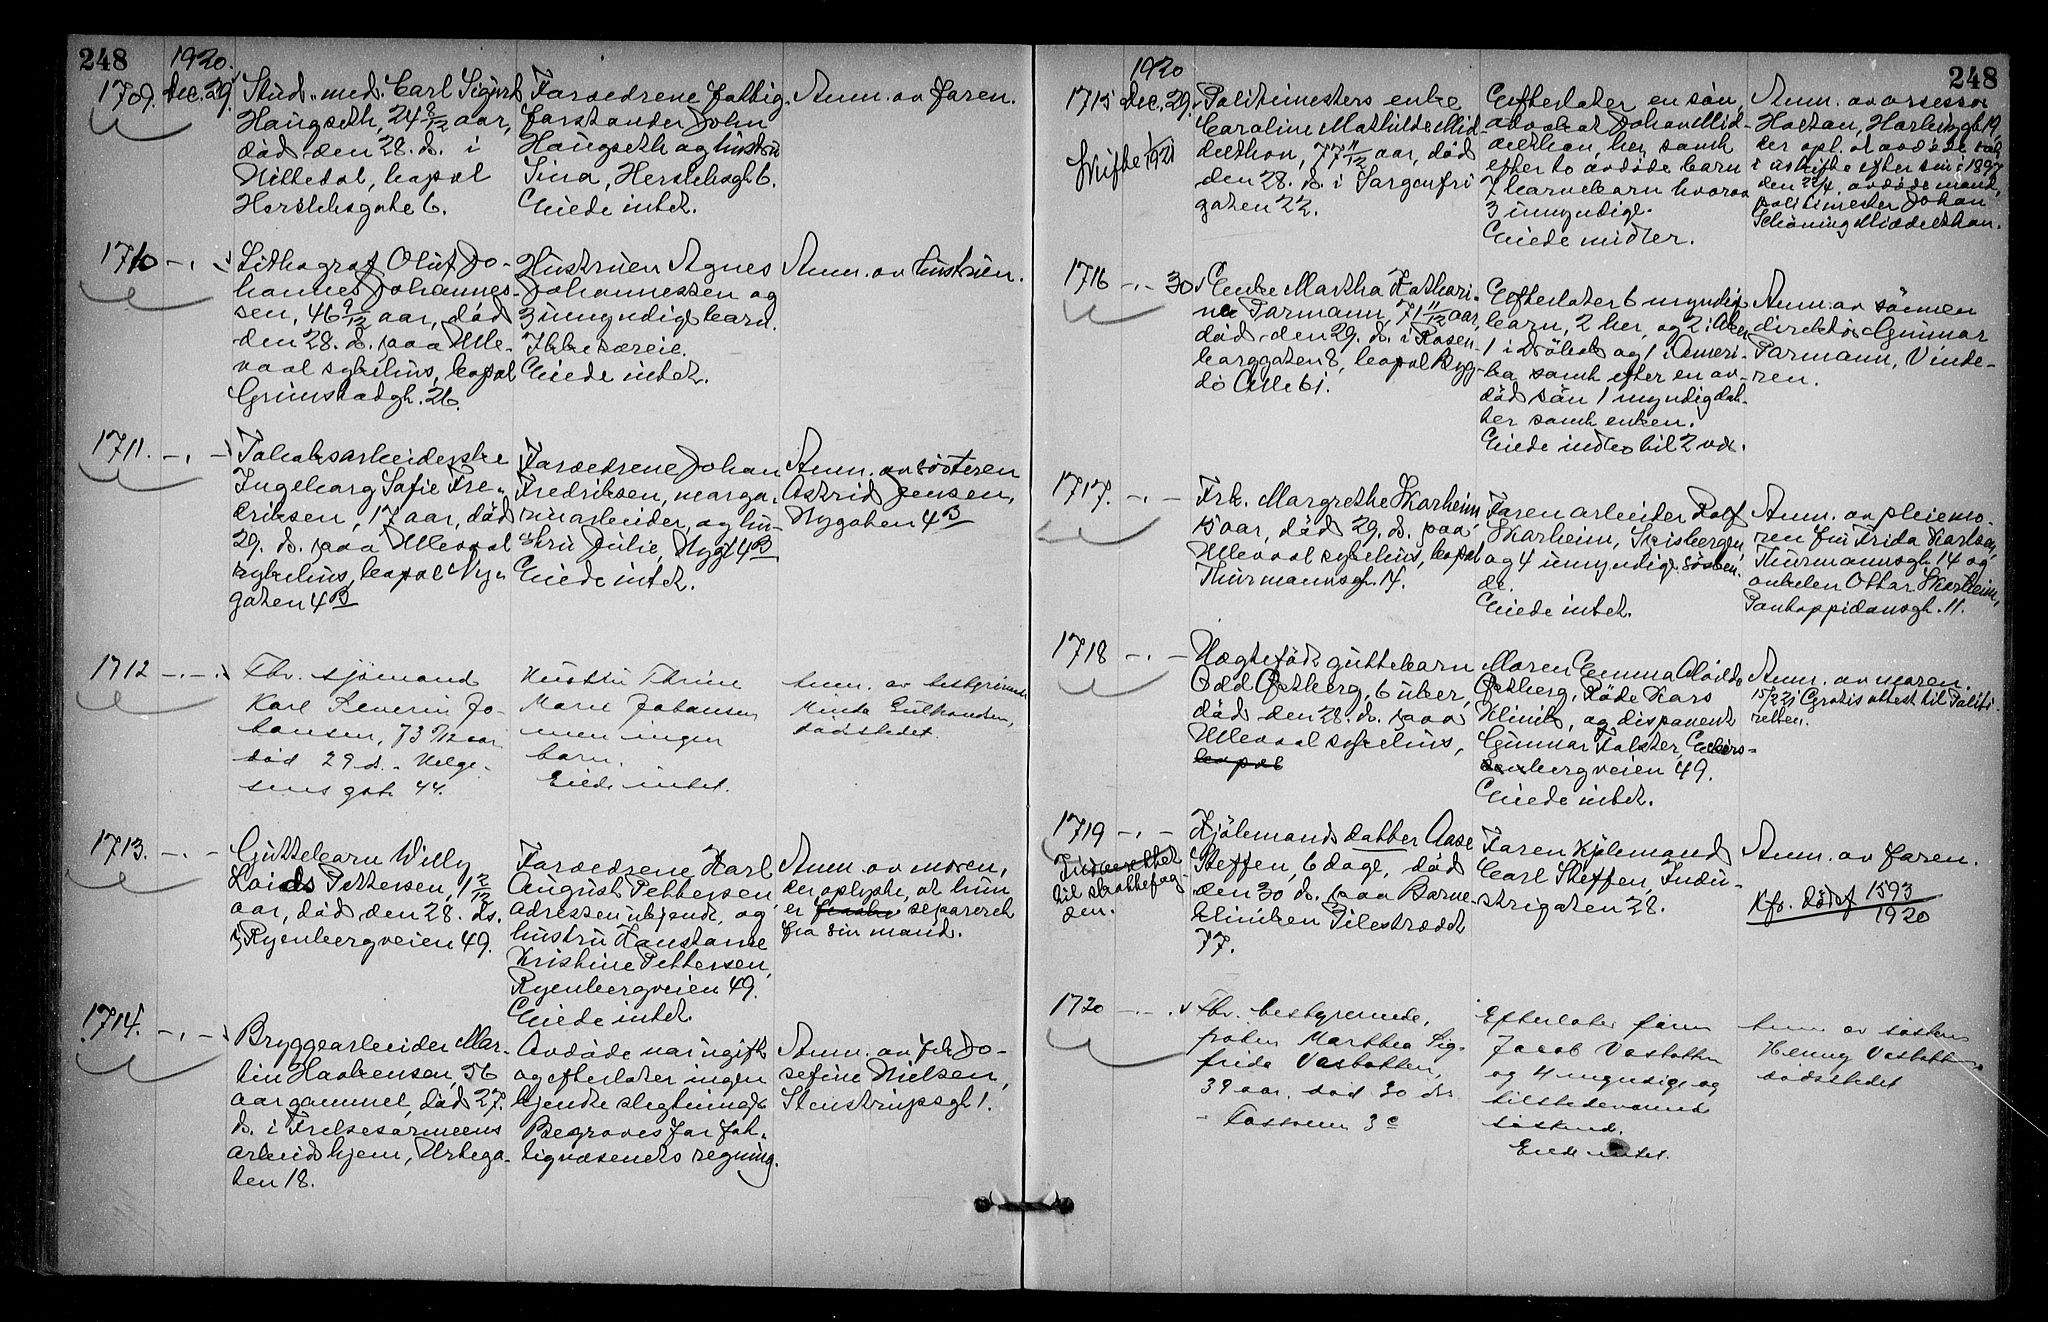 248
1920.
1709. Dec. 29. Stud. med. Carl Sigurd
Haugseth, 24 8/12 aar,
död den 28. ds. i
Nittedal, bopæl
Herslebsgate 6.
Forældrene fattig-
forstander John
Haugseth og hustru
Tina, Herslebsgt. 6.
Eiede intet.
Anm. av faren.
1710 -.- Lithograf Oluf Jo-
hannes Johannes-
sen, 46 9/12 aar, död
den 28. ds. paa Ulle-
vaal sykehus, bopæl
Grimstadgt. 26.
Hustruen Agnes
Johannessen og
3 umyndige barn.
Ikke særeie.
Eiede intet.
Anm. av hustruen.
1711. -.- Tobaksarbeiderske
Ingeborg Sofie Fre-
driksen, 17 aar, död
29. ds. paa Ullevaal
sykehus, bopæl Ny-
gaten 4B
Forældrene Johan
Fredriksen, marga-
rinarbeider, og hu-
stru Julie, Nygt 4B
Eiede intet.
Anm. av søsteren
Astrid Jensen,
Nygaten 4B
1712 -.- Fhv. sjømand
Karl Severin Jo-
hansen, 73 9/12 aar
død 29 ds. - Helge-
sens gate 44.
Hustru Thrine
Marie Johansen
men ingen
barn.
Eiede intet.
Anm. av bestyrerinde
Minda Gulbrandsen,
dødsstedet.
1713. -.- Guttebarn Willy
Pettersen, 1 2/12
aar, död den 28. ds.
i Ryenbergveien 49.
Forældrene Karl
August Pettersen,
adressen ukjendt, og
hustru Konstance
Kristine Pettersen,
Ryenbergveien 49.
Eiede intet.
Anm. av moren,
der oplyste, at hun
er separeret
fra sin mand.
1714. -.- Bryggearbeider Mar-
tin Haakensen, 56
aar gammel, död 27.
ds. i Frelsesarmeens
arbeidshjem, Urtega-
ten 18.
Avdöde var ugift
og efterlater ingen
kjendte slegtninge.
Begraves for fat-
tigvæsenets regning.
Anm. av frk. Jo-
sefine Nielsen,
Stenstrupsgt. 1.
248
1920
1715 Dec. 29. Politimesters enke
Caroline Mathilde Mid-
delthon, 77 11/12 aar, död
den 28. ds. i Sorgenfri
gaten 22.
Skifte 1921
Efterlater en sön,
advokat Johan Mid-
delthon, her, samt
efter to avdöde barn
7 barnebarn hvorav
3 umyndige.
Eiede midler.
Anm. av assessor
Holtan,
der opl. at avdöde sat
i uskifte efter sin i 1897
den 22/4 avdöde mand,
politimester Johan
Schöning Middelthon.
1716 -.- 30 Enke Martha Kathari-
na Parmann, 71 11/12 aar,
död den 29. ds. i Rosen-
borggaten 8, bopæl Byg-
dö Allé 61.
Efterlater 6 myndige
barn, 2 her, og 2 i Aker
1 i Dröbak og 1 i Ameri-
ka samt efter en av-
död sön 1 myndig dat-
ter samt enken.
Eiede indbo til 2 vdr.
Anm. av sönnen
direktör Gunnar
Parmann, Vinde-
ren.
1717. -.- Frk. Margrethe Skarheim
15 aar, död 29. ds. paa
Ullevaal sykehus, bopæl
Thurmannsgt. 14.
Faren arbeider Rolf
Skarheim, Spitsbergen,
og 4 umyndige søsken-
de.
Eiede intet.
Anm. av pleiemo-
ren fru Frida Karlsen,
Thurmannsgt. 14 og
onkelen Ottar Skarheim,
Pontoppidansgt. 11.
1718 -.- Uegtefödt guttebarn
Odd Østberg, 6 uker,
död den 28. ds. paa
Ullevaal sykehus,
bopæl
Moren Emma Alvilde
Østberg, Røde Kors
Klinik, og disponent
Gunnar Falster,
bergveien 49.
Eiede intet.
Anm. av moren.
15/2 21 Gratis attest til Politi-
retten.
1719 -.- Kjölemands datter Aase
Steffen, 6 dage, död
den 30 ds. paa Barne-
kliniken Pilestrædet
77.
Indberettet
til skattefog-
den.
Faren Kjölemand
Carl Steffen, Indu-
strigaten 28.
Anm. av faren.
Kfr. dödsf 1593/1920
1720 -.- Fhv. bestyrerinde,
frøken Marthea Sig-
frida Vasbotten,
39 aar, død 30 ds.
- Toftesgt 3 c
Efterlater faren
Jacob Vasbotten
og 4 myndige og
tilstedeværende
søskend.
Eiede intet.
Anm. av søsteren
Henny Vasbotten
dødsstedet